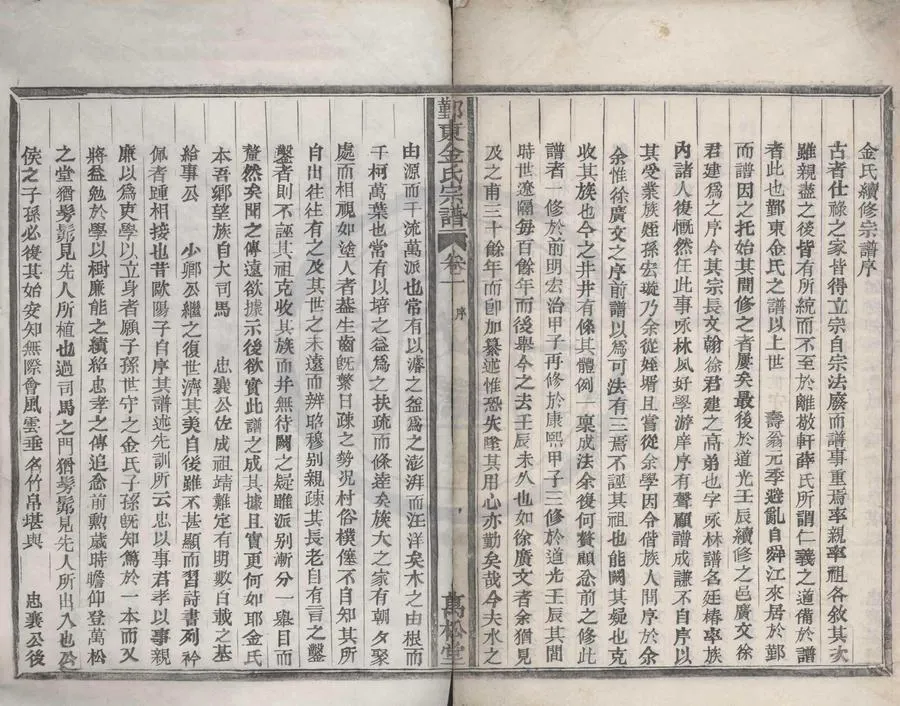 金氏續修宗譜序
古者仕祿之家皆得立宗自宗法廢而譜事重焉率親率祖各敘其次
雖親盡之後皆有所統而不至於離敬軒薛氏所謂仁義之道備於譜
者此也鄞東金氏之譜以上世 壽翁元季避亂自舜江來居於鄞
而譜因之托始其間修之者屢矣最後於道光壬辰續修之邑廣文徐
君建為之序今其宗長文翰徐君建之高弟也字啄林譜名廷椿率族
內諸人復慨然任此事啄林夙好學游庠序有聲顧譜成謙不自序以
其受業族姪孫宏璇乃余從姪壻且嘗從余學因介偕族人問序於余
余惟徐廣文之序前譜以為可法有三焉不誣其祖也能闕其疑也克
收其族也今之井井有條其體例一稟成法余復何贅顧念前之修此
譜者一修於前明宏治甲子再修於康熙甲子三修於道光壬辰其間
時世遼隔每百餘年而後舉今之去壬辰未久也如徐廣文者余猶見
及之甫三十餘年而即加纂述惟恐失墜其用心亦勤矣哉今夫水之
鄞東金氏宗譜 卷一 序 萬松堂
由源而千流萬派也常有以濬之益為之澎湃而汪洋矣木之由根而
千柯萬葉也常有以培之益為之扶疏而條達矣族大之家有朝夕聚
處而相視如塗人者葢生齒既繁日疎之勢況村俗樸僿不自知其所
自出往往有之及其世之未遠而辨昭穆別親疎其長老自有言之鑿
鑿者則不誣其祖克收其族而并無待闕之疑雖派別漸分一舉目而
釐然矣聞之傳遠欲據示後欲實此譜之成其據且實更何如耶金氏
本吾鄉望族自大司馬 忠襄公佐成祖靖難定有明數百載之基
給事公 少卿公繼之復世濟其美自後雖不甚顯而習詩書列衿
佩者踵相接也昔歐陽子自序其譜述先訓所云忠以事君孝以事親
廉以為吏學以立身者願子孫世守之金氏子孫既知篤於一本而又
將益勉於學以樹廉能之績紹忠孝之傳追念前勳歲時瞻仰登萬松
之堂猶髣髴見先人所植也過司馬之門猶髣髴見先人所出入也公
侯之子孫必復其始安知無際會風雲垂名竹帛堪與 忠襄公後